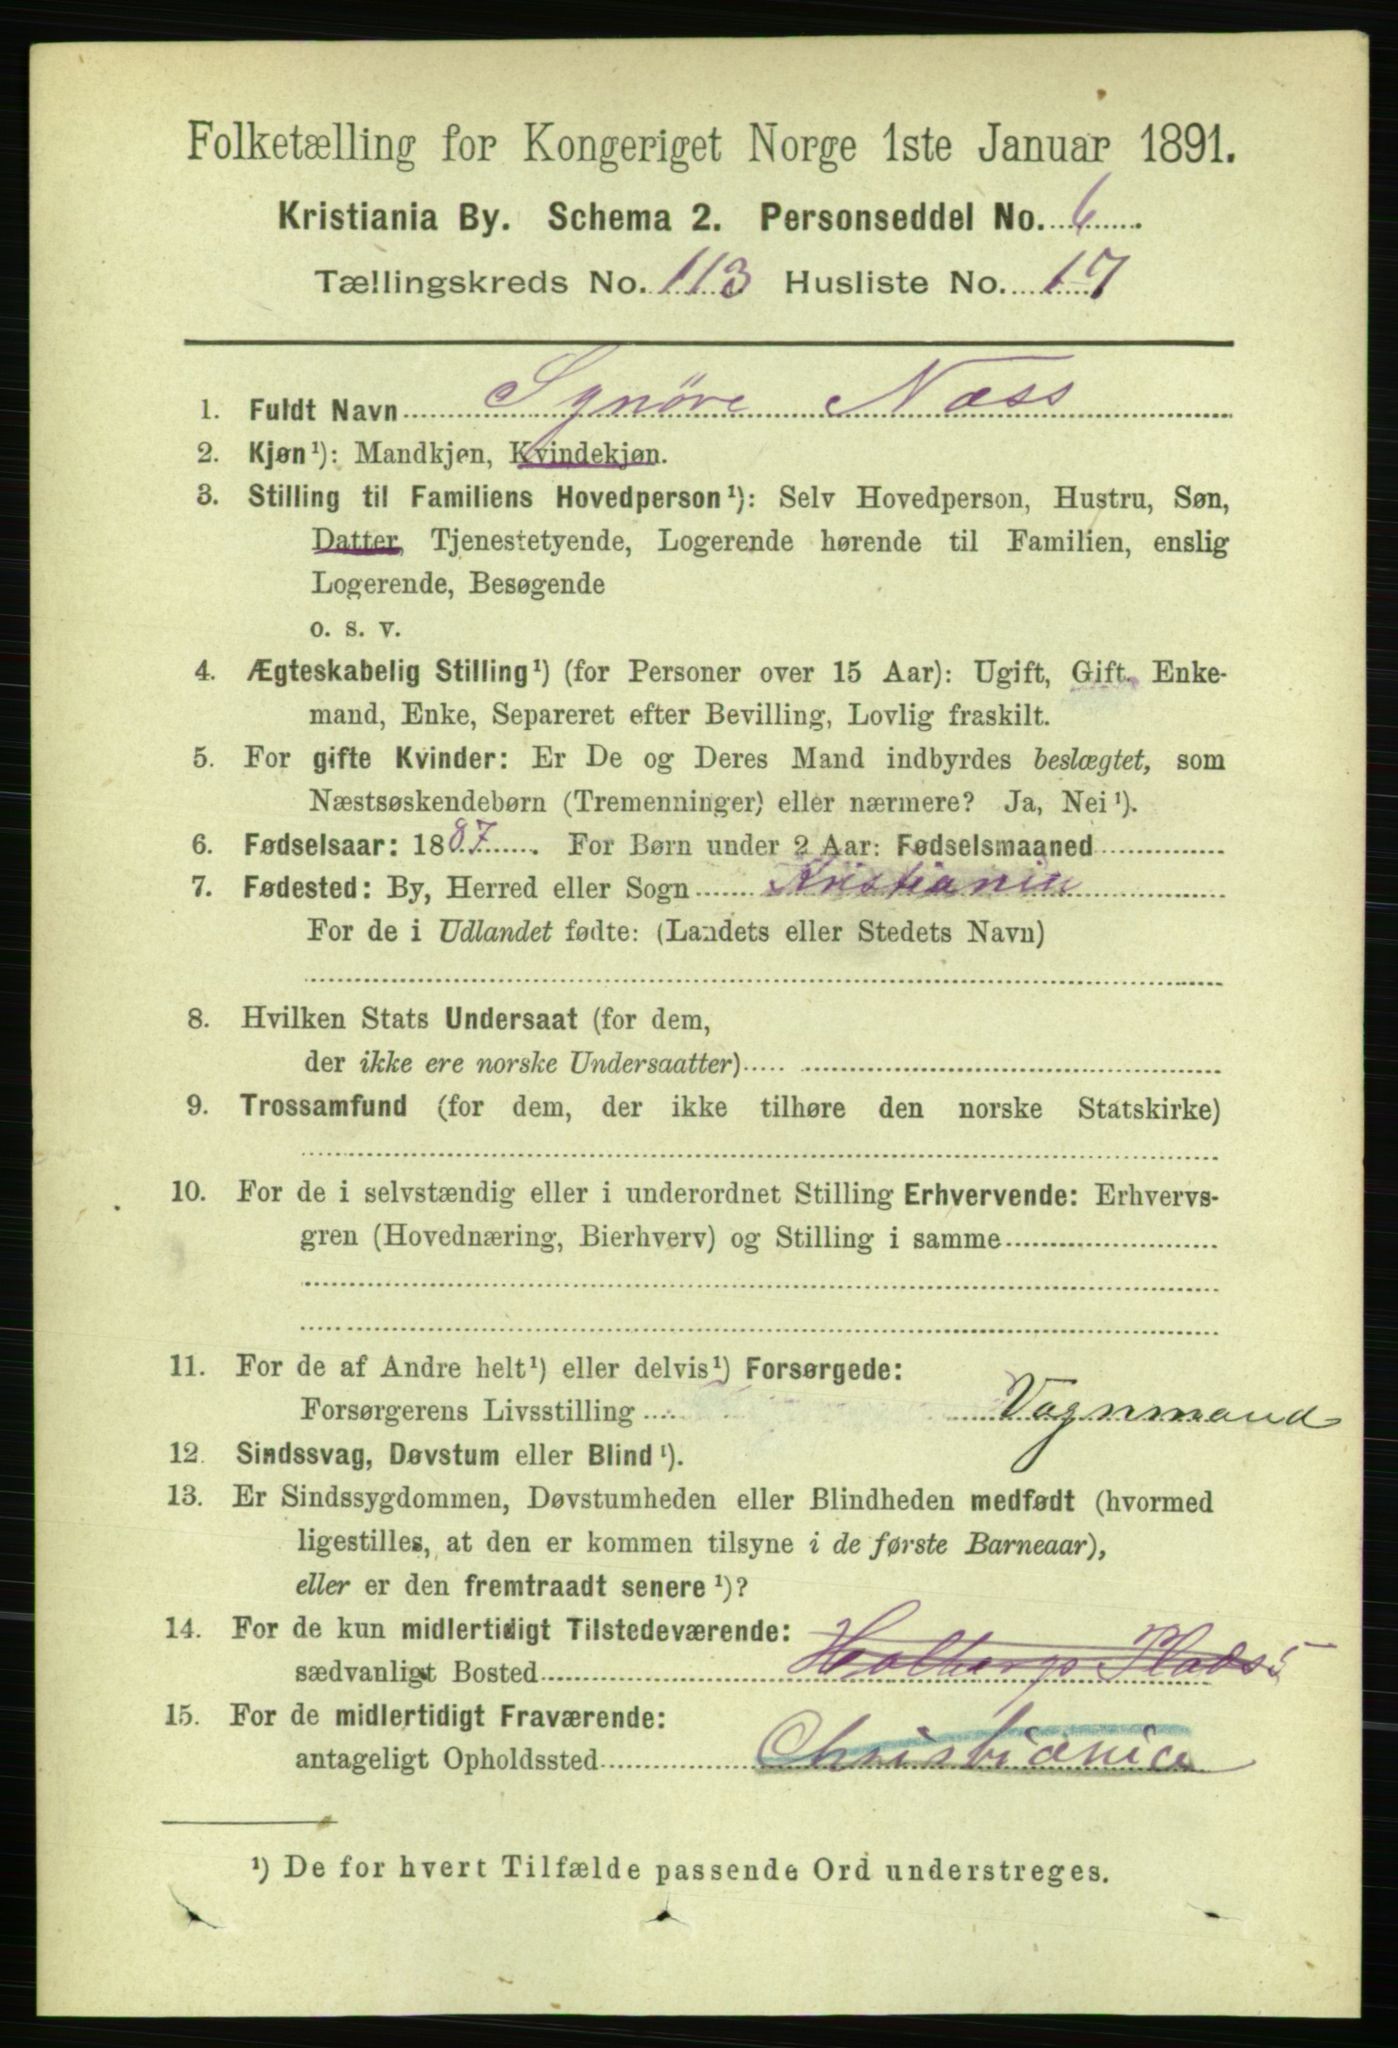 Folketælling for Kongeriget Norge 1ste Januar 1891.
Kristiania By. Schema 2. Personseddel No. 6
Tællingskreds No. 113 Husliste No. 17
1. Fuldt Navn Synöve Næss
2. Kjøn¹): Mandkjøn, Kvindekjøn.
3. Stilling til Familiens Hovedperson¹): Selv Hovedperson, Hustru, Søn,
Datter, Tjenestetyende, Logerende hørende til Familien, enslig
Logerende, Besøgende
o. s. v.
4. Ægteskabelig Stilling¹) (for Personer over 15 Aar): Ugift, Gift, Enke-
mand, Enke, Separeret efter Bevilling, Lovlig fraskilt.
5. For gifte Kvinder: Er De og Deres Mand indbyrdes beslægtet, som
Næstsøskendebørn (Tremenninger) eller nærmere? Ja, Nei¹).
6. Fødselsaar: 1887. For Børn under 2 Aar: Fødselsmaaned
7. Fødested: By, Herred eller Sogn Kristiania
For de i Udlandet fødte: (Landets eller Stedets Navn)
8. Hvilken Stats Undersaat (for dem,
der ikke ere norske Undersaatter)
9. Trossamfund (for dem, der ikke tilhøre den norske Statskirke)
10. For de i selvstændig eller i underordnet Stilling Erhvervende: Erhvervs-
gren (Hovednæring, Bierhverv) og Stilling i samme
11. For de af Andre helt¹) eller delvis¹) Forsørgede:
Forsørgerens Livsstilling Vognmand
12. Sindssvag, Døvstum eller Blind¹).
13. Er Sindssygdommen, Døvstumheden eller Blindheden medfødt (hvormed
ligestilles, at den er kommen tilsyne i de første Barneaar),
eller er den fremtraadt senere¹)?
14. For de kun midlertidigt Tilstedeværende:
sædvanligt Bosted Holbergs Plads 5
15. For de midlertidigt Fraværende:
antageligt Opholdssted Christiania
¹) De for hvert Tilfælde passende Ord understreges.